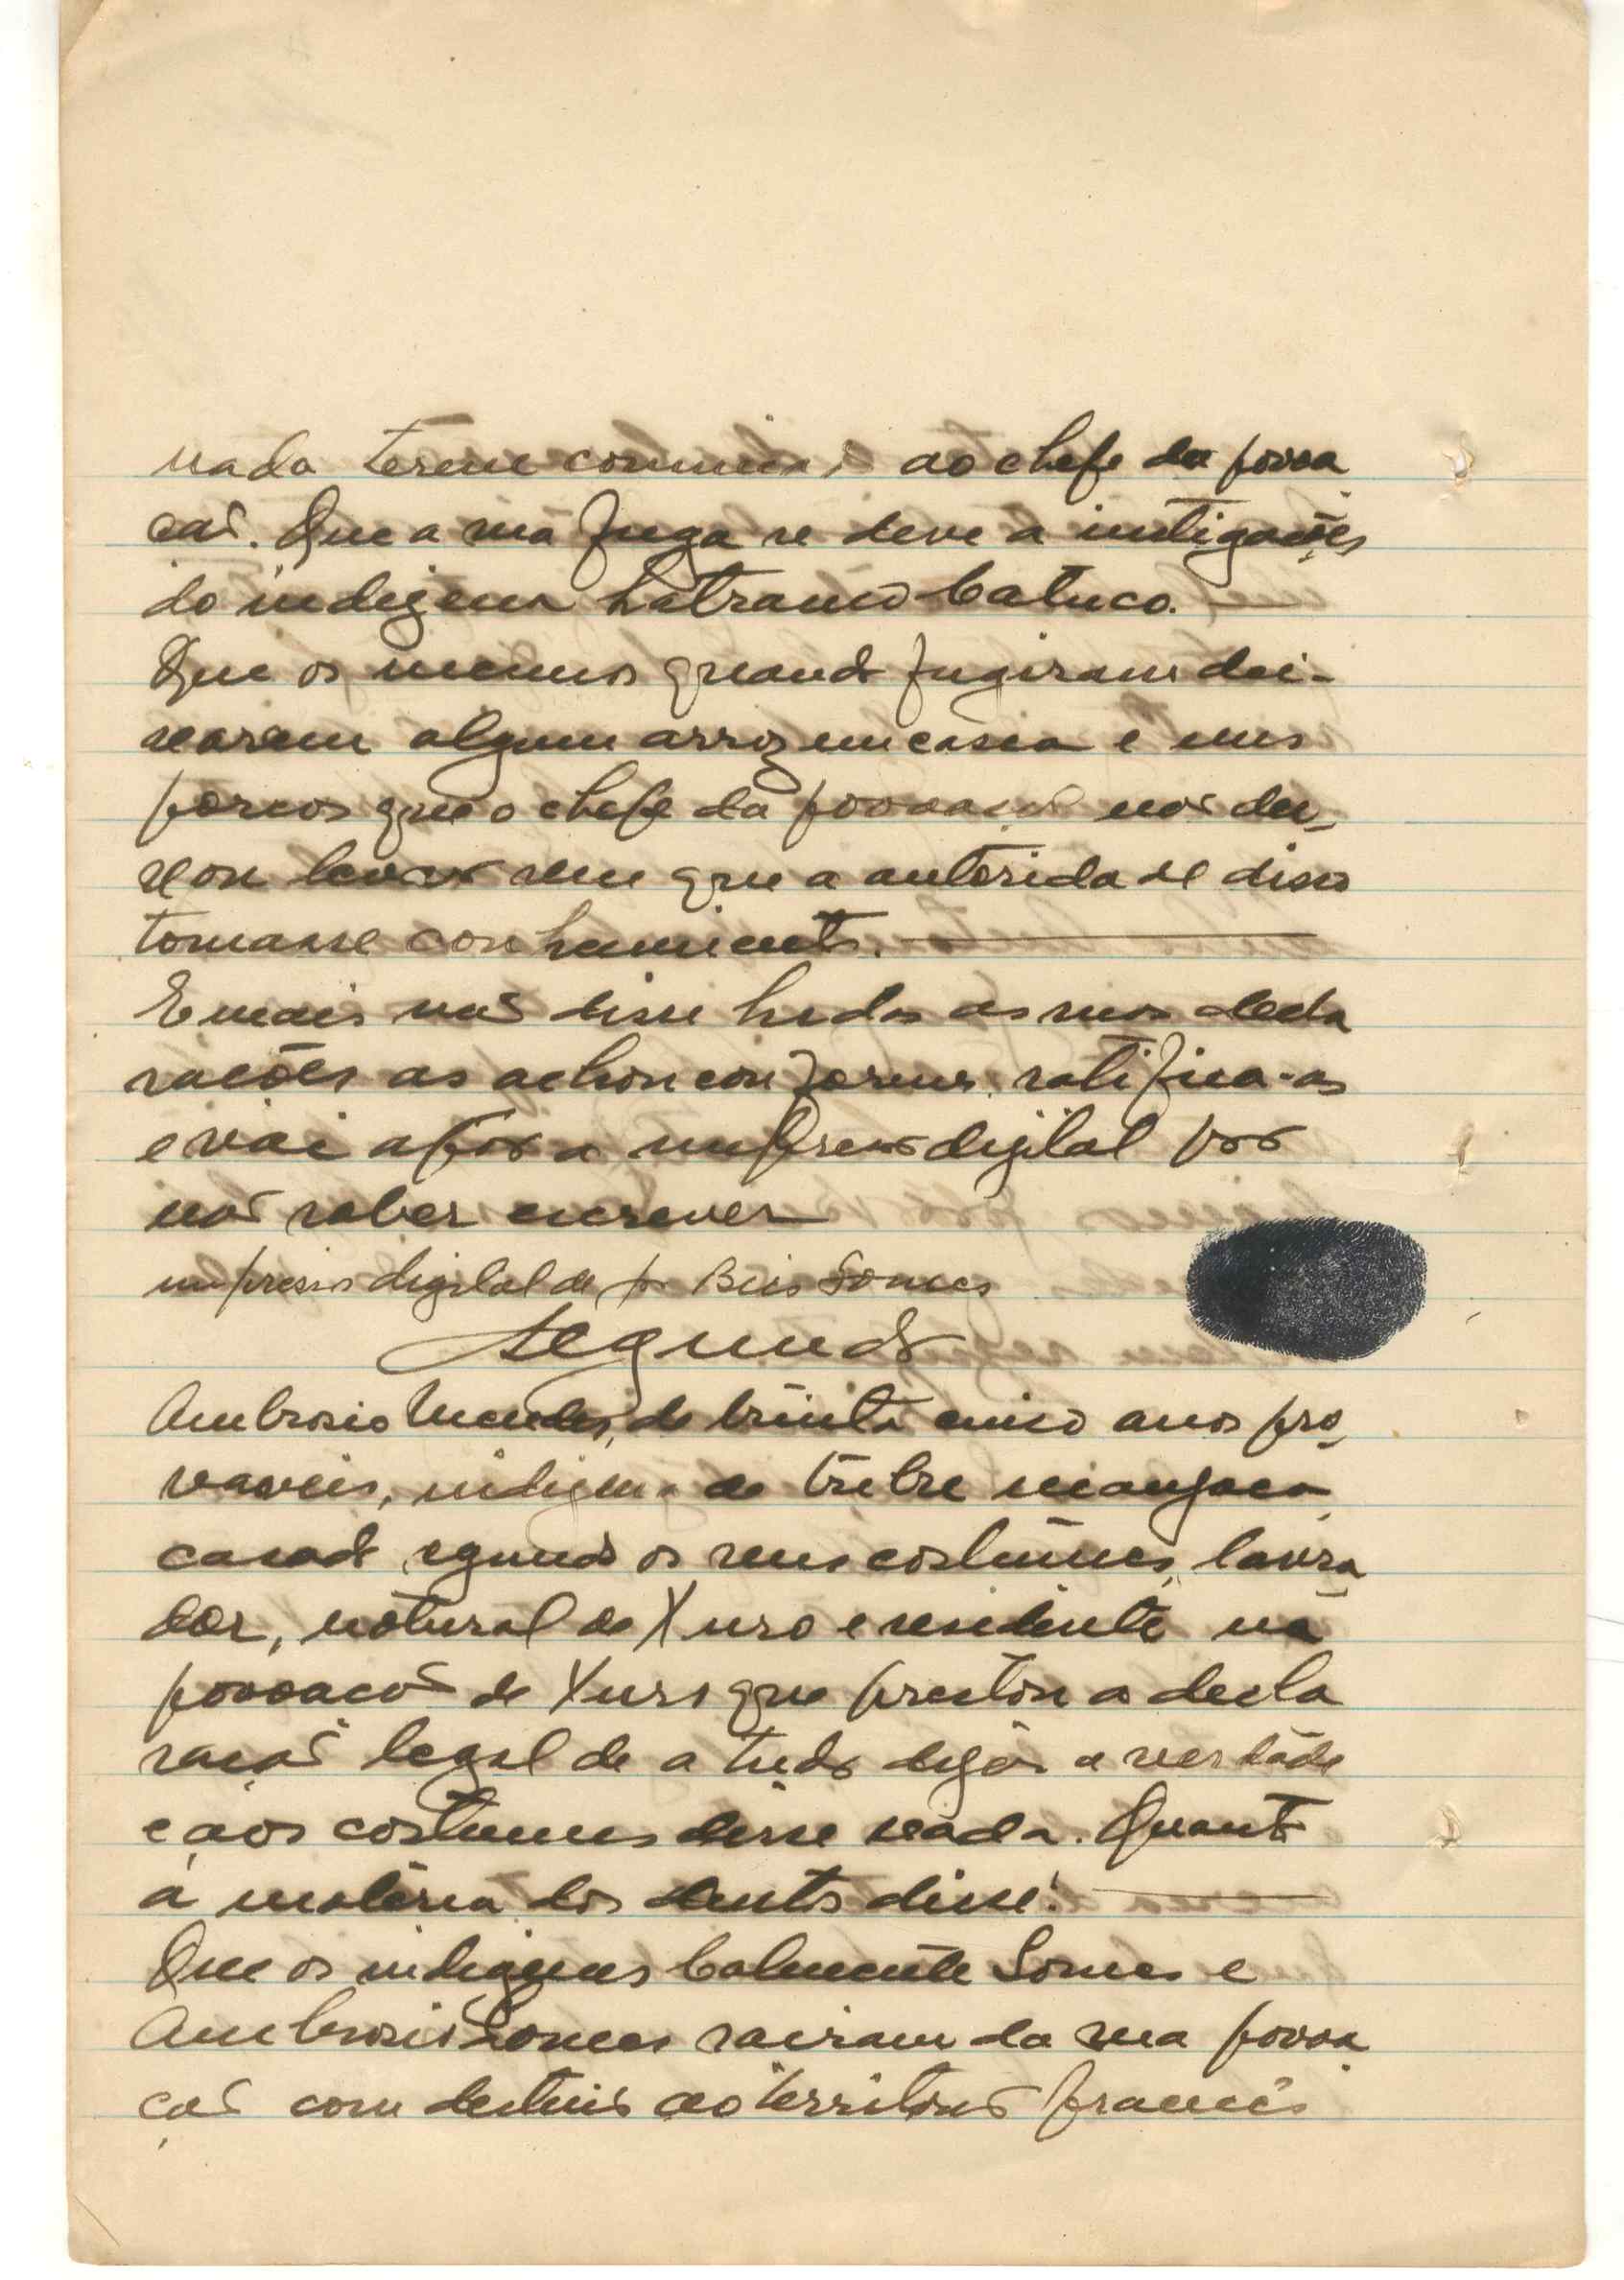 nada tereme comunicar ao chefe da povoa
ção. Que a sua fuga se deve a instigações
do indigena Catuco.
Que os mesmos quando fugiram dei-
xaram algum arroz em casca e uns
porcos que o chefe da povoação não dei-
xou levar sem que a autoridade disso
tomasse conhecimento.
E mais não disse lidas as suas decla
rações as achou conformes, ratifica-as
e vai apôr a impressão digital por
não saber escrever
impressão digital de Gomes
Segundo
Ambrosio Mendes, de trinta cinco anos pro
vaveis, indigena de tribe manjaca
casado segundo os seus costumes, lavra
dor, natural de Xuro e residente na
povoação de Xuro que prestou a decla
ração legal de a tudo dizer a verdade
e aos costumes disse nada. Quanto
á matéria dos disse:
Que os indigenas Gomes e
Ambrosio Gomes sairam da sua povoa
ção com destino ao território francês